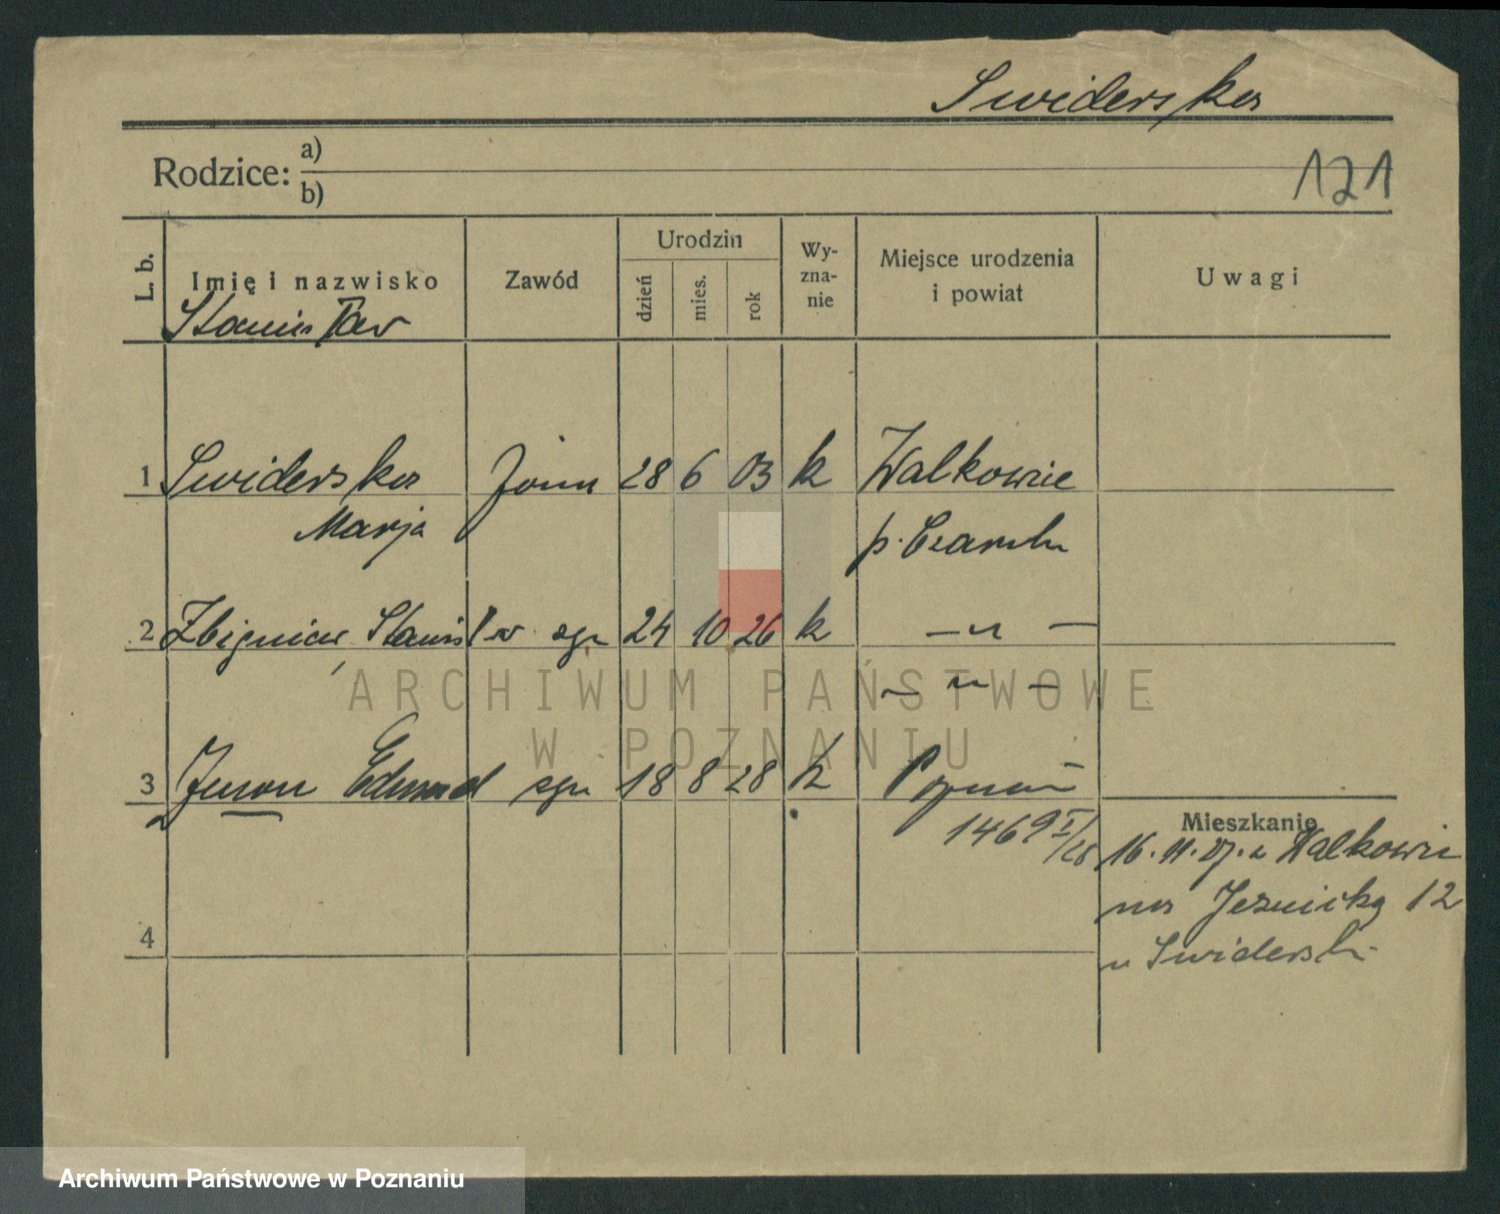 Swiderska
Rodzice: a)
b)
121
L. b. Imię i nazwisko Zawód Urodzin dzień mies. rok Wy-zna-nie Miejsce urodzenia i powiat Uwagi
Stanisław
1 Swiderska 28 6 03 k Walkowice
Marja p.
2 Zbigniew, Stanisław syn 24 10 26 k — " —
— " —
3 Edmund syn 18 8 28 k Poznań
1469 I/28
Mieszkanie
16. 11. 27. z Walkowic
na 12
u Swiderski
4
ARCHIWUM PAŃSTWOWE
W POZNANIU
Archiwum Państwowe w Poznaniu